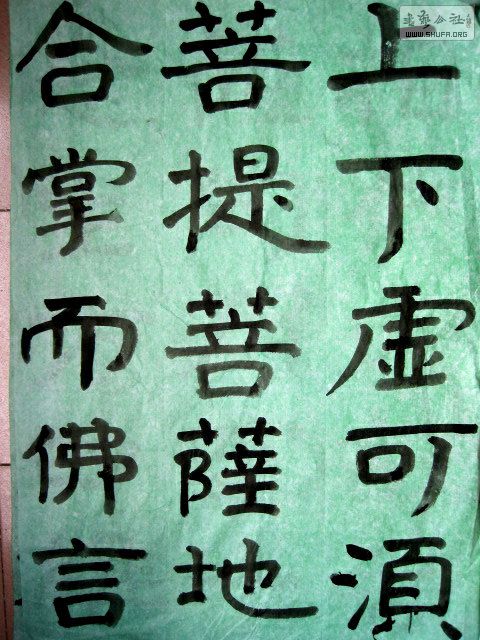 上下虛可須
菩提菩薩地
合掌而佛言
書法公社
WWW.SHUFA.ORG